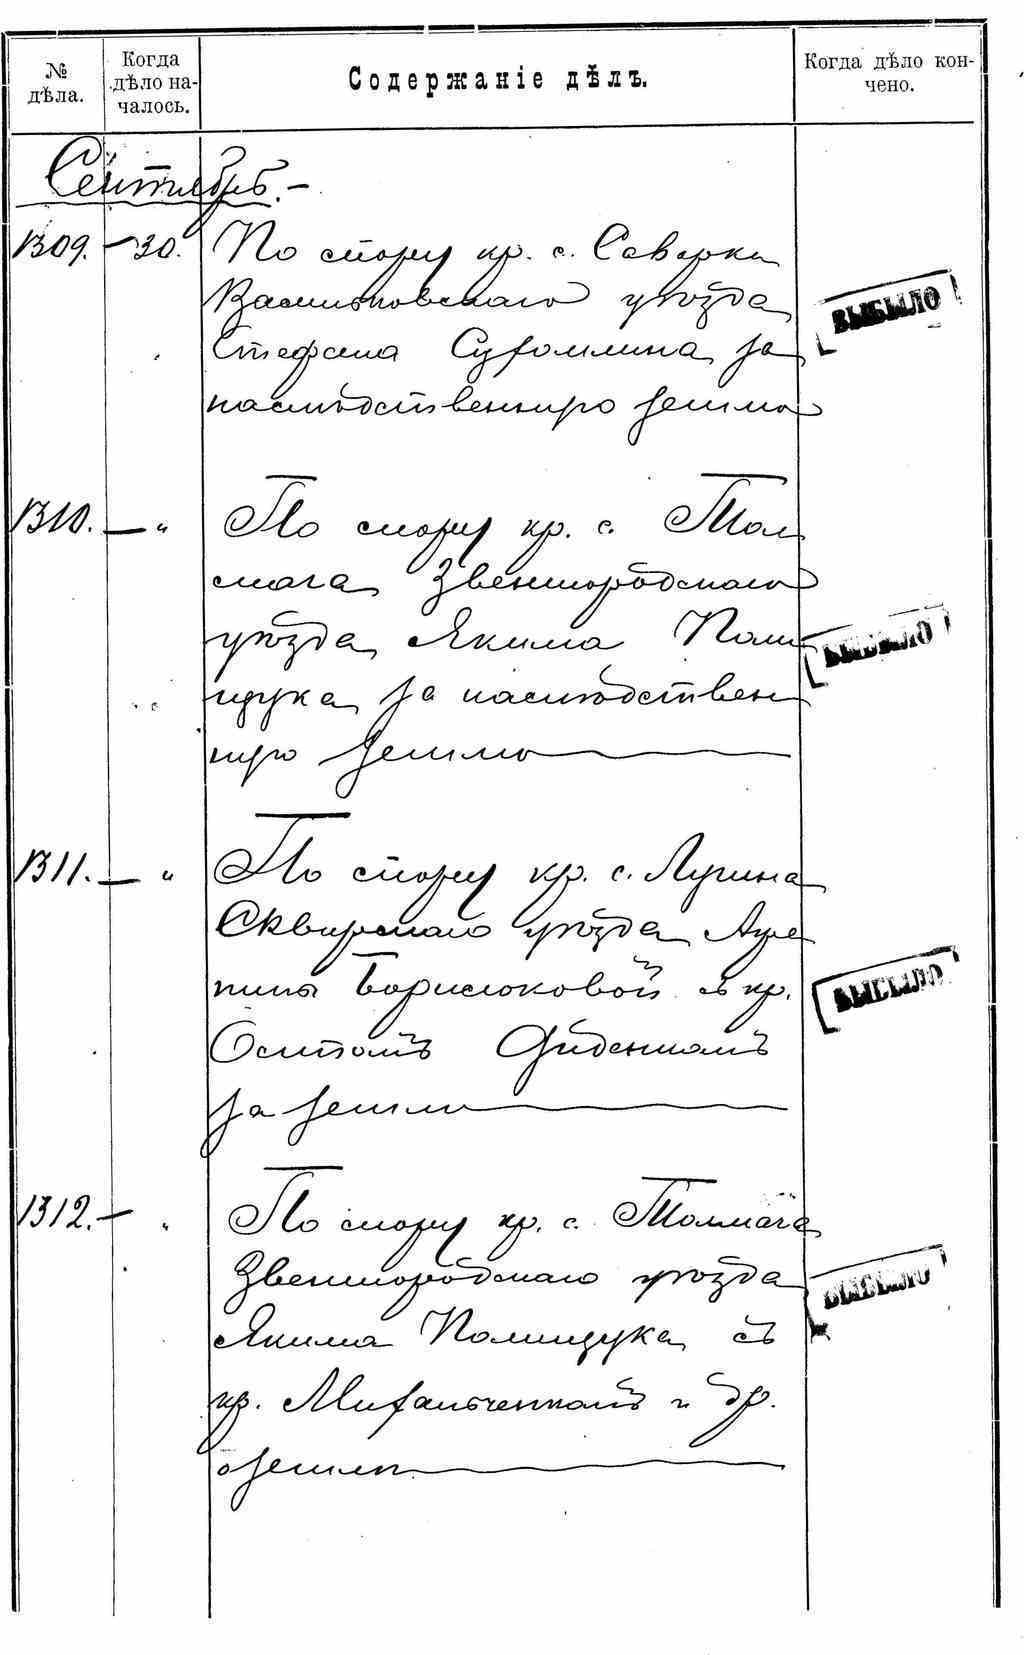 №
дѣла.
Когда
дѣло на-
чалось.
Содержаніе дѣлъ.
Когда дѣло кон-
чено.
Сентябрь.-
1309. - 30. По спору кр. с. Саварки
Васильковскаго уѣзда
Стефана Сухомлина за
наслѣдственную землю
ВЫБЫЛО
1310. — „ По спору кр. с. Тол
мача Звенигородскаго
уѣзда Якима Поли
щука за наслѣдствен
ную землю
ВЫБЫЛО
1311. — „ По спору кр. с. Лучина
Сквирскаго уѣзда Агре
пины Борисюковой съ кр.
Осипомъ Диденкомъ
за землю
ВЫБЫЛО
1312. — „ По спору кр. с. Толмача
Звенигородскаго уѣзда
Якима Полищука съ
кр. Михальченкомъ и др.
о землѣ
ВЫБЫЛО